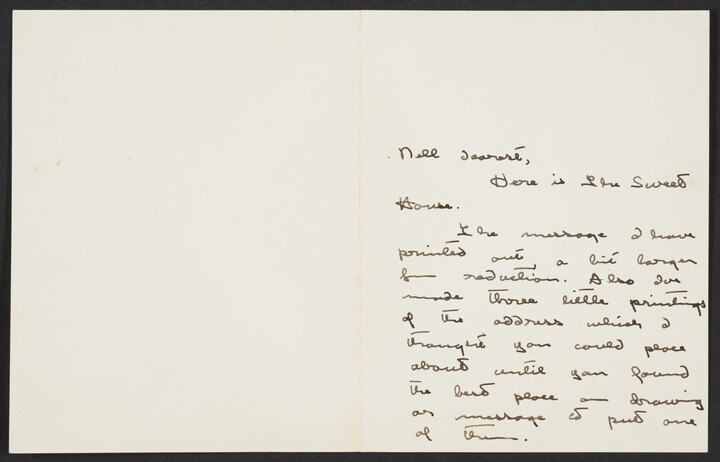 Nell dearest,
Here is The Sweet
House.
The message I have
printed out, a bit larger
for reduction. Also I've
made three little printings
of the address which I
thought you could place
about until you found
the best place on drawing
or message to put one
of them.